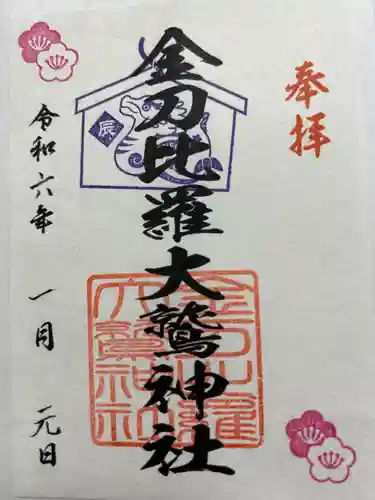 奉拝
金刀比羅大鷲神社
辰
金刀比羅大鷲神社
令和六年 一月 元日